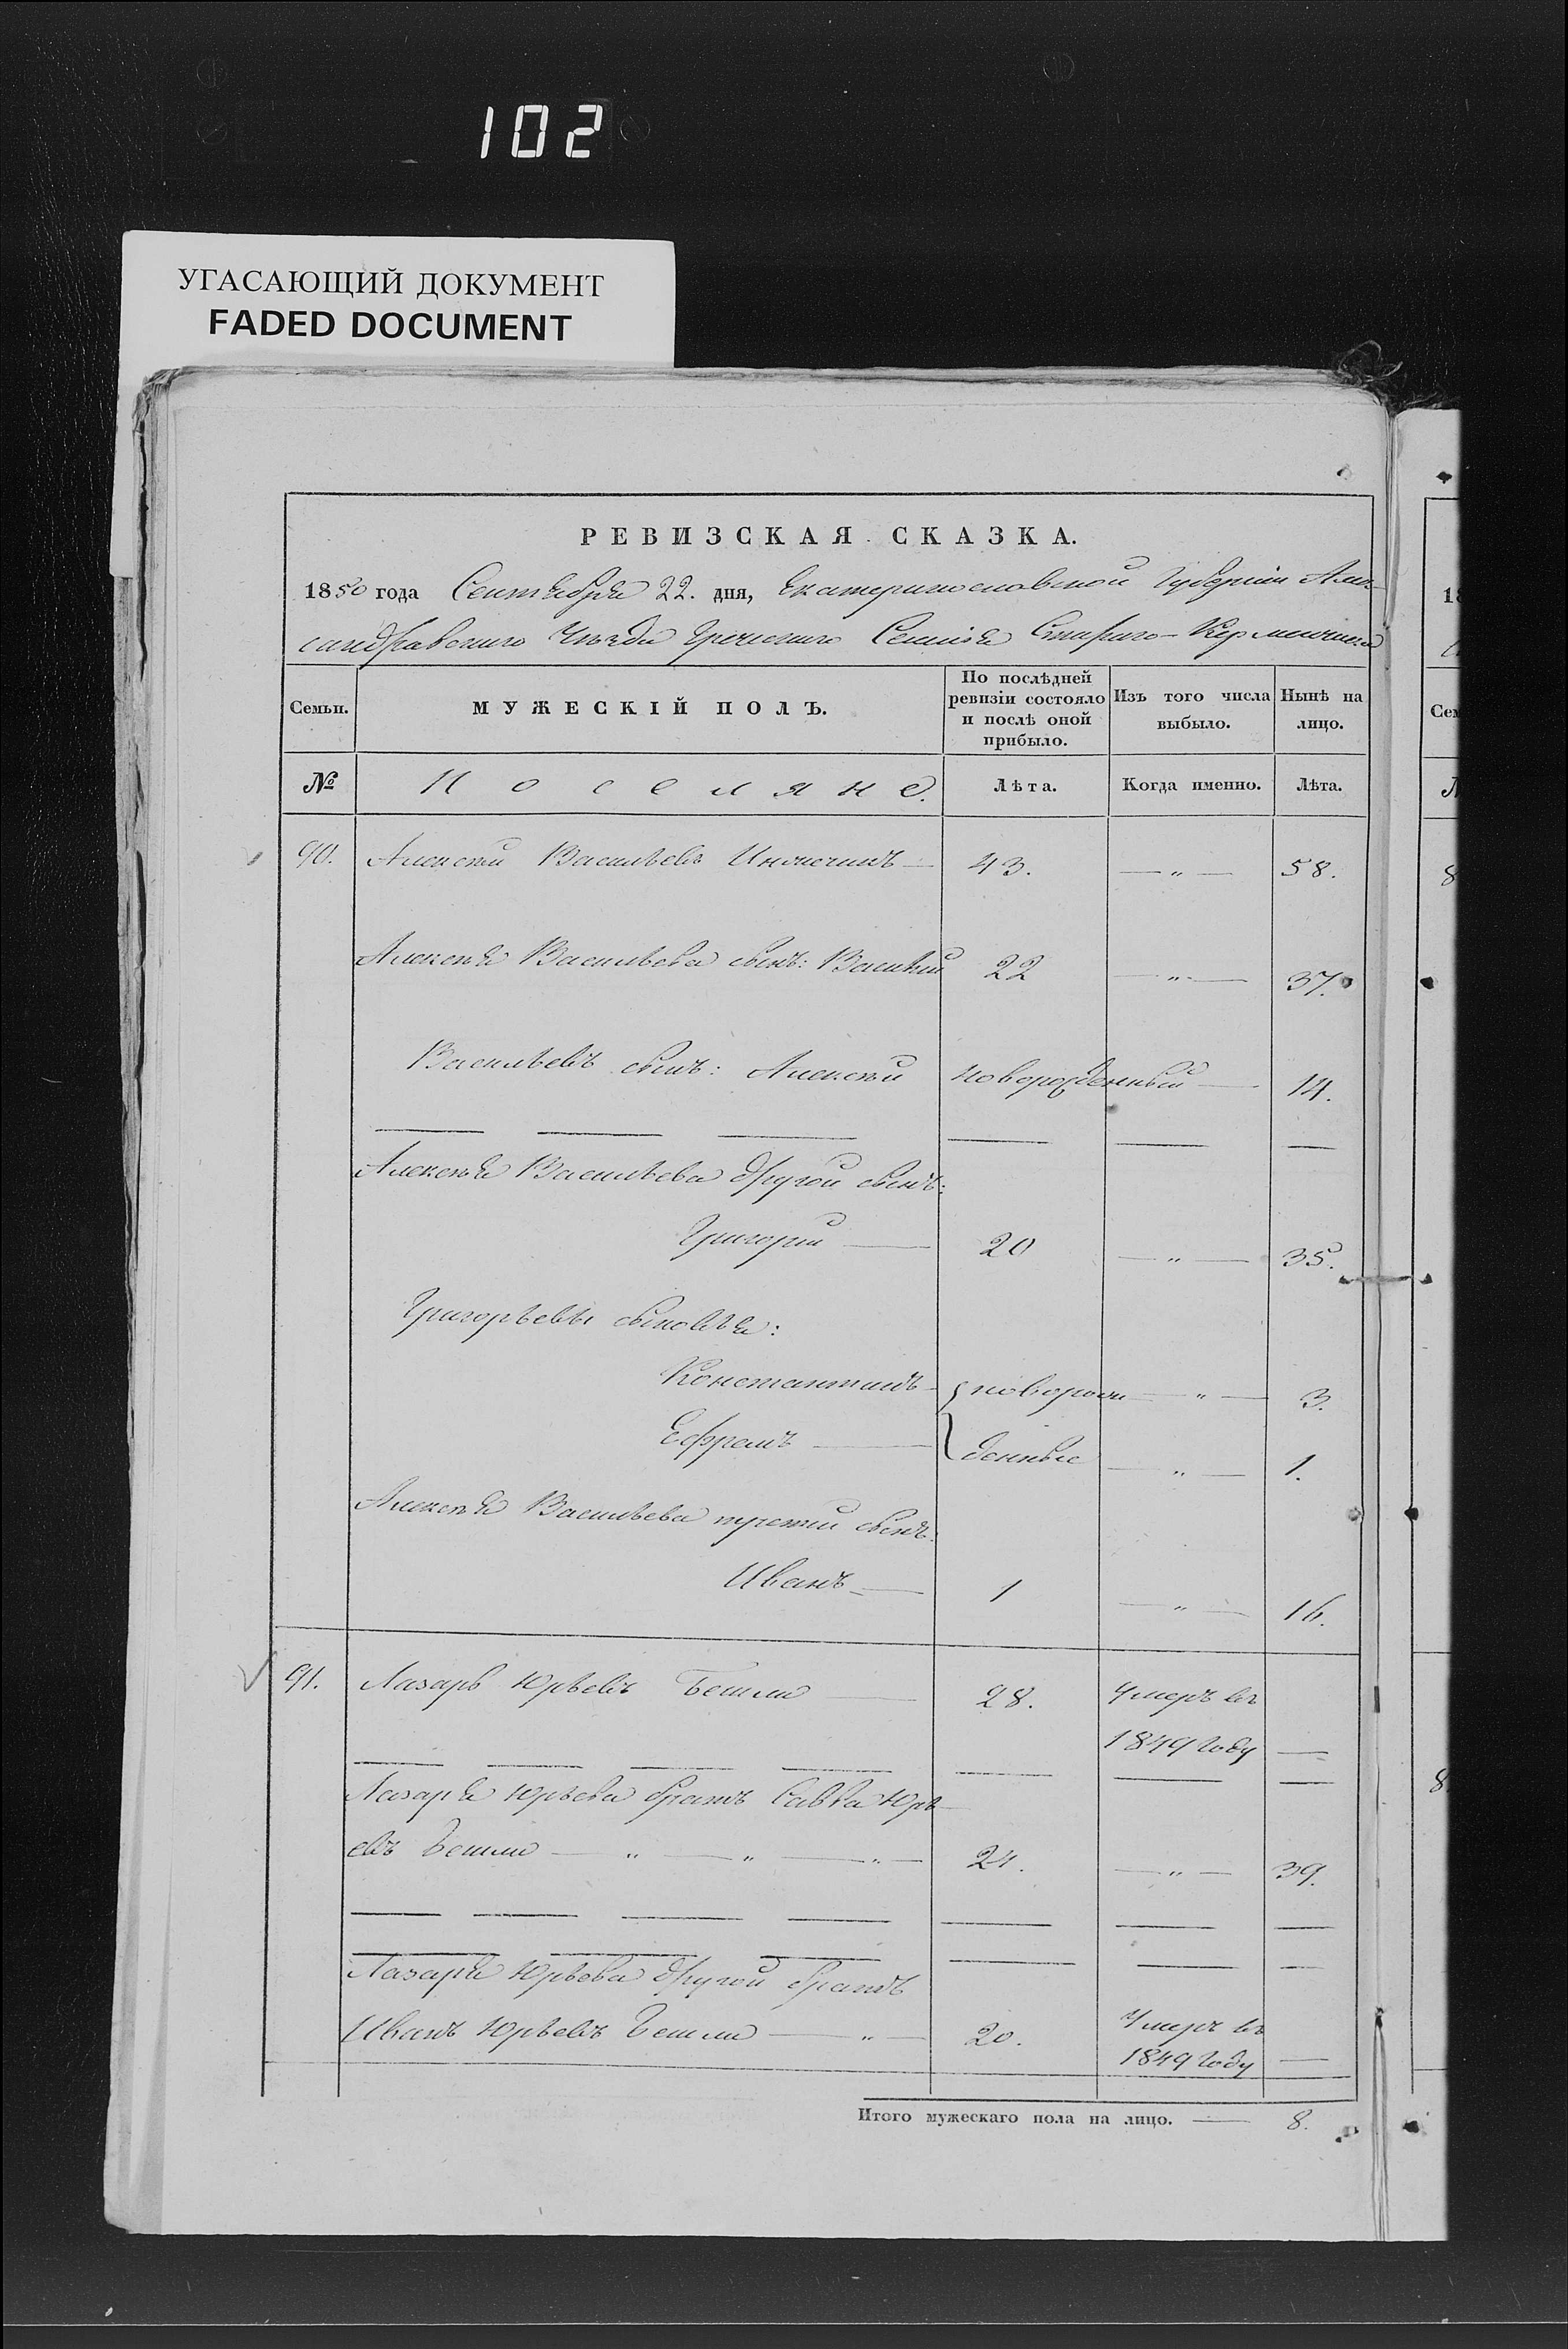 102
УГАСАЮЩИЙ ДОКУМЕНТ
FADED DOCUMENT
РЕВИЗСКАЯ СКАЗКА.
1850 года Сентября 22. дня, Екатеринославской Губернии Алек-
сандравского Уѣзда Греческого Селенія Стараго-Керменчика
Семьи. МУЖЕСКІЙ ПОЛЪ. По послѣдней ревизіи состояло и послѣ оной прибыло. Изъ того числа выбыло. Нынѣ на лицо.
№ Поселяне. Лѣта. Когда именно. Лѣта.
90. Алексѣй Васильевъ 43. — " — 58.
Алексѣя Васильева сынъ: Василій 22 — " — 37.
Васильевъ сынъ: Алексѣй новорожденный — 14.
Алексѣя Васильева другой сынъ:
Григорій — 20 — " — 35.
Григорьевы сыновья:
Константинъ — новорож — " — 3.
Ефремъ — денные — " — 1.
Алексѣя Васильева третій сынъ:
Иванъ — 1 — " — 16.
91. Лазарь Юрьевъ Бешли — 28. Умеръ въ
1849 году —
Лазаря Юрьева братъ Савва Юрь-
евъ Бешли — " — " — " — 24. — " — 39.
Лазаря Юрьева другой братъ
Иванъ Юрьевъ Бешли — " — 20. Умеръ въ
1849 году —
Итого мужескаго пола на лицо. — 8.